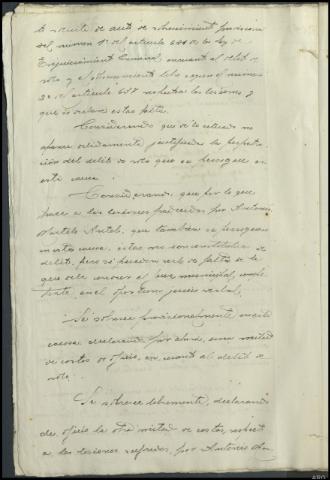 to
del número 1º del artículo 641 de la ley de
Enjuiciamiento Criminal, en cuanto al delito de
robo y el sobreseimiento libre segun el número
2º del artículo 637 respecto a las lesiones y
que se declare estas falta.
Considerando que de lo actuado no
aparece debidamente justificada la perpetra-
ción del delito de robo que se persigue en
esta causa.
Considerando, que por lo que
hace a las lesiones padecidas por Antonio
que tambien se persiguen
en esta causa, estas no son constitutivas de
delito, pero sí pueden serlo de falta de la
que debe conocer el Juez municipal, com-
petente, en el oportuno juicio verbal.
Se sobresee provisionalmente en esta
causa declarando por ahora, una mitad
de costas de oficio, en cuanto al delito de
robo.
Se sobresee libremente, declarando
de oficio la otra mitad de costas, respecto
a las lesiones sufridas, por Antonio